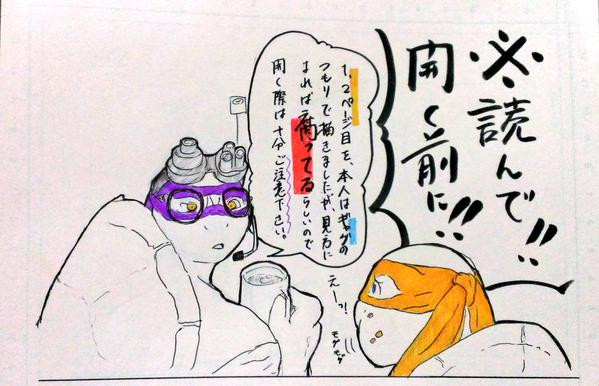 ※読んで!!
開く前に!!
1,2ページ目を、本人はギャグの
つもりで描きましたが、見方に
よれば腐ってるらしいので
開く際は十分ご注意下さい。
えーっ!
モグモグ